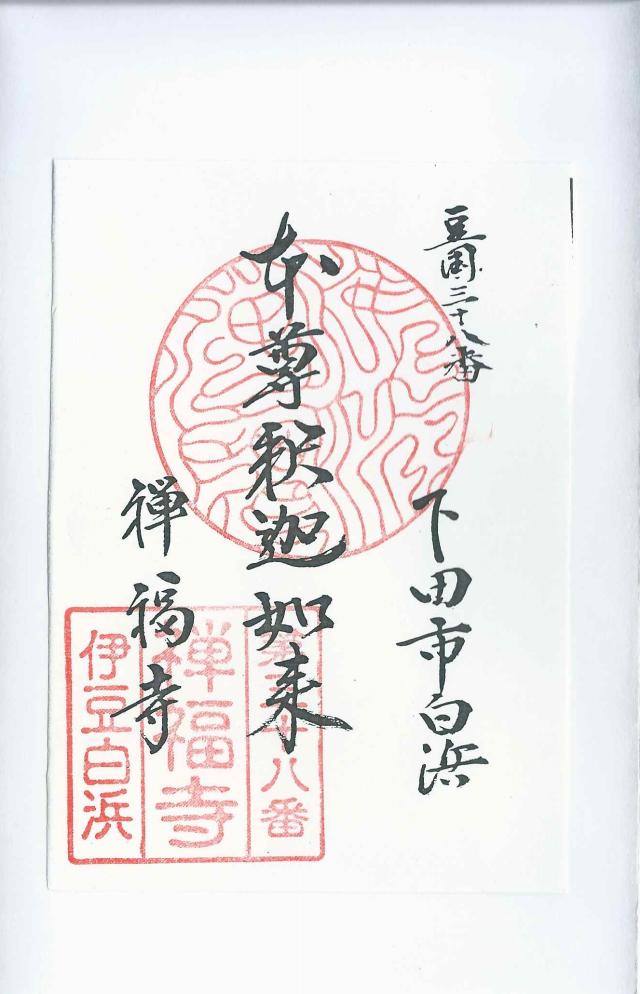 豆国三十八番
下田市白浜
本尊釈迦如来
禅福寺
三十八番
禅福寺
伊豆白浜